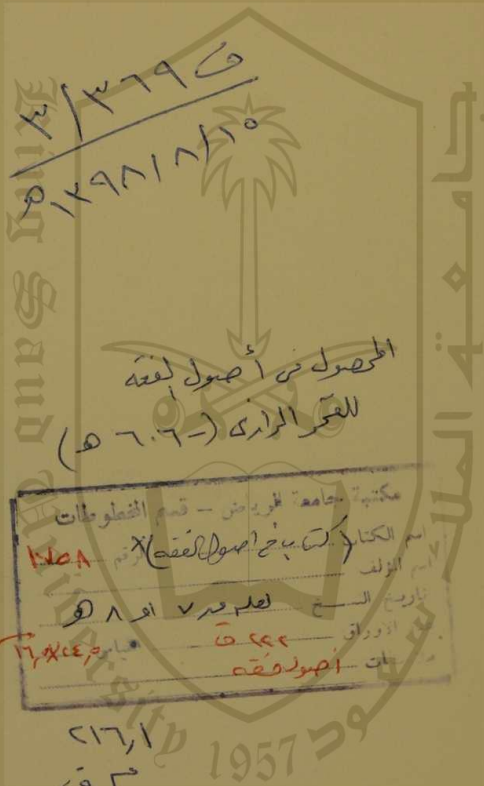 ف ٣/٣٦٩
١٣٩٨/٨/١٥ هـ
المحصول في أصول الفقه
للفخر الرازي (-٦٠٦ هـ)
مكتبة جامعة الرياض - قسم المخطوطات
اسم الكتاب (كتاب في اصول الفقه) الرقم
اسم المؤلف
تاريخ النسخ لعله من ٧ او ٨ هـ
عدد الاوراق ٢٩٢ ق
أصول فقه
٢١٦,١
King Saud University
جامعة الملك سعود
1957